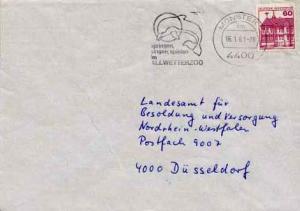 springen,
spielen
im
ALLWETTERZOO
MÜNSTER
16.1.81-18
4400
60
Landesamt für
Besoldung und Versorgung
Nordrhein-Westfalen
Postfach 9007
4000 Düsseldorf